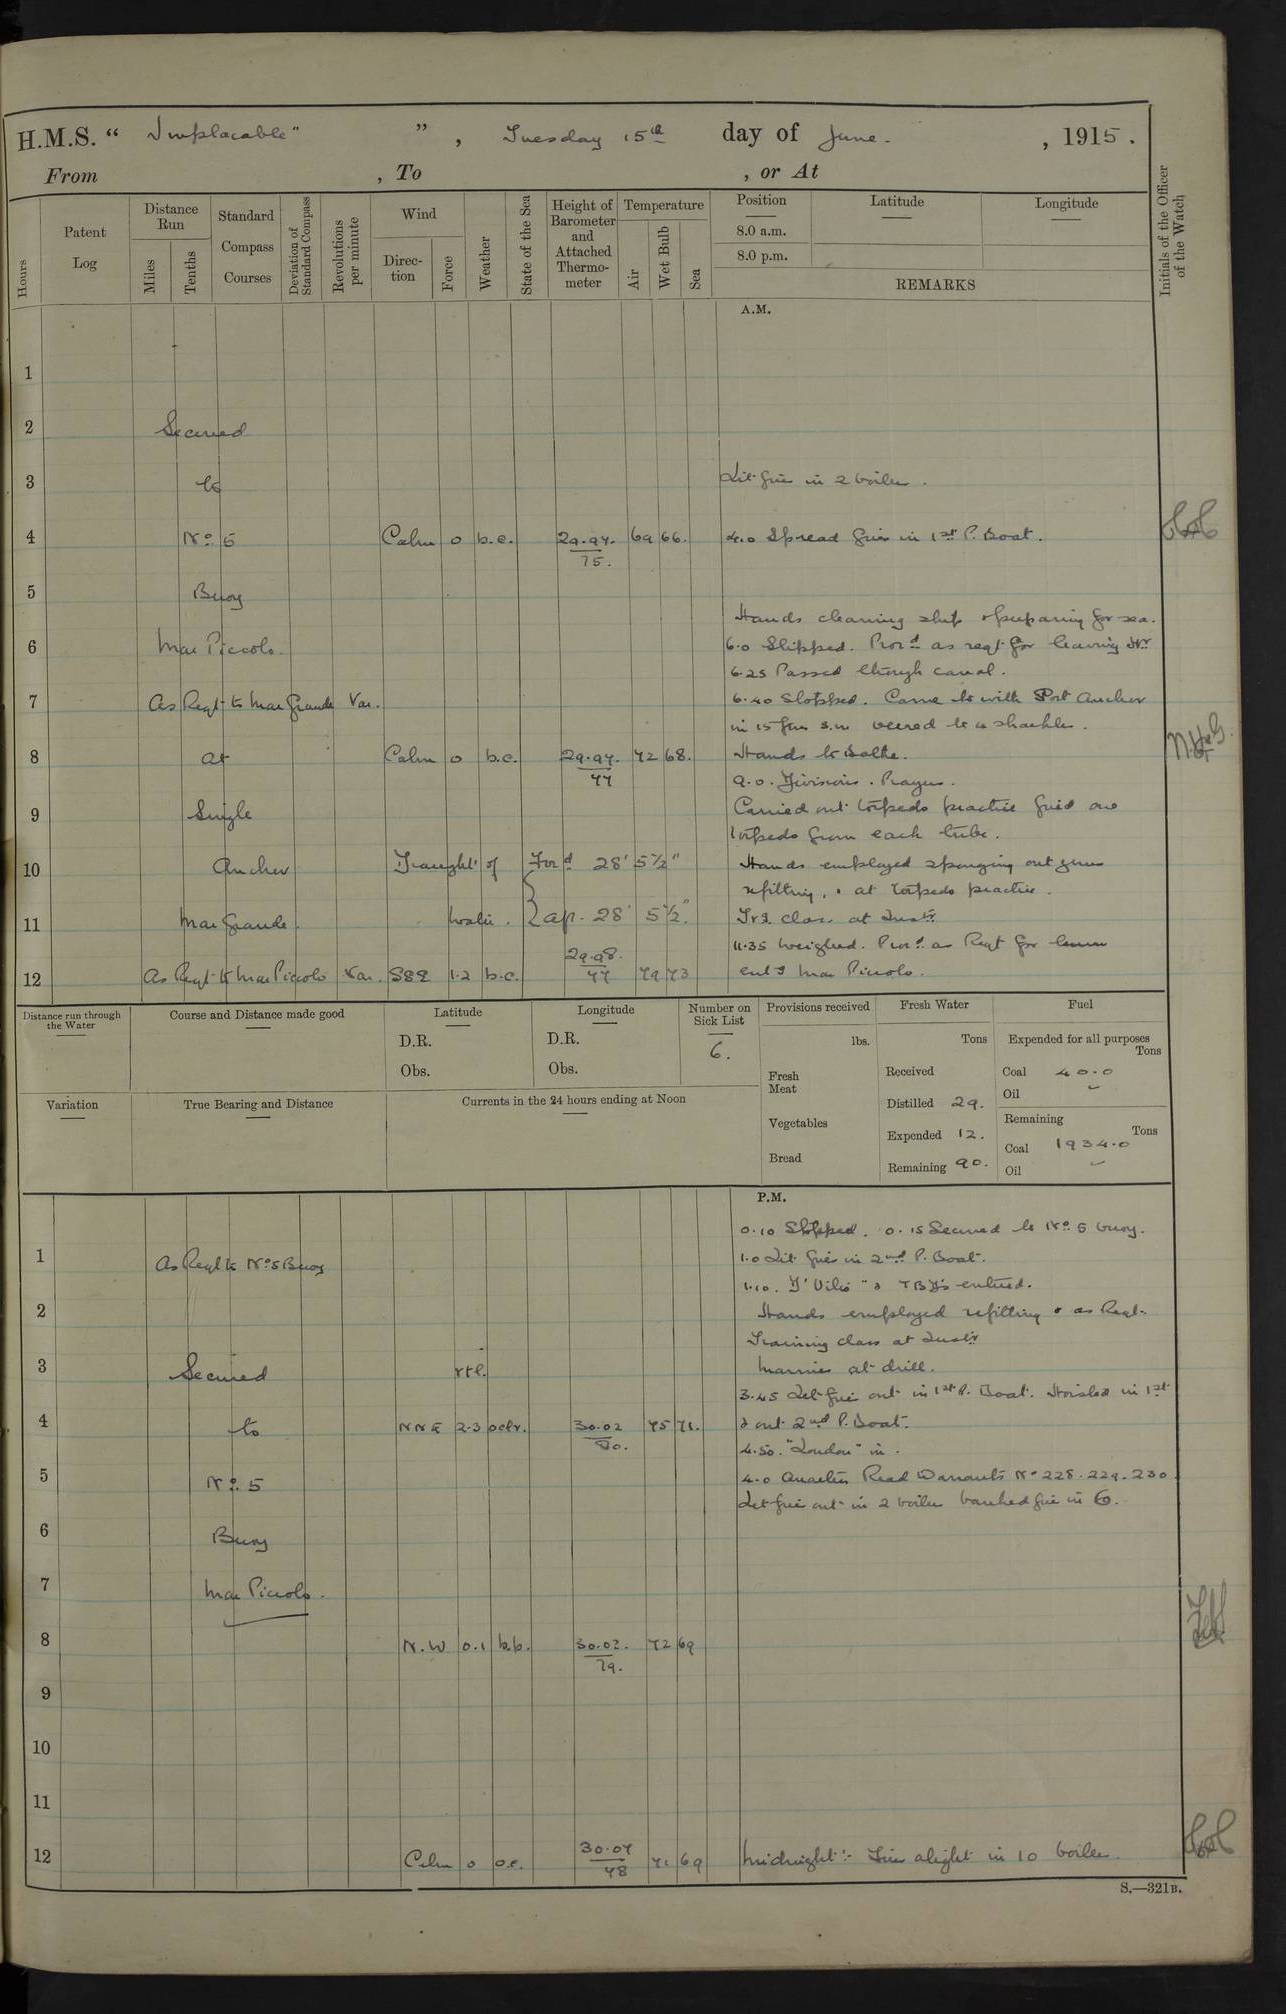 H.M.S. " Implacable" ", Tuesday 15th day of June. , 1915.
From , To , or At
Hours
Patent Log
Distance Run
Miles
Tenths
Standard Compass Courses
Deviation of Standard Compass
Revolutions per minute
Wind
Direc-tion
Force
Weather
State of the Sea
Height of Barometer and Attached Thermo-meter
Temperature
Air
Wet Bulb
Sea
Position
8.0 a.m.
8.0 p.m.
Latitude
Longitude
REMARKS
Initials of the Officer of the Watch
A.M.
1
2 Secured
3 to Lit fires in 2 boilers.
4 No 5 Calm 0 b.c. 29.97. 69 66. 4.0 Spread fires in 1st P. Boat.
75.
5 Buoy
Hands cleaning ship & preparing for sea.
6 Mar Piccolo. 6.0 Slipped. Procd as reqt for leaving Hr
6.25 Passed through canal.
7 As Reqt to Mar Grande Var. 6.40 Stopped. Came to with Port Anchor
in 15 fms s.m veered to 4 shackles.
8 at Calm 0 b.c. 29.97. 72 68. Hands to Bathe.
77
9.0. Divisions. Prayers.
9 Single Carried out torpedo practice fired one
torpedo from each tube.
10 Anchor Draught of Ford 28' 5½" Hands employed sponging out guns
refitting, & at torpedo practice.
11 Mar Grande. water. { aft. 28' 5½" Trg. class at Instn
11.35 Weighed. Procd as Reqt for
29.98.
12 As Reqt to Mar Piccolo Var. SSE 1.2 b.c. 77 79 73 entg Mar Piccolo.
Distance run through the Water
Course and Distance made good
Latitude
D.R.
Obs.
Longitude
D.R.
Obs.
Number on Sick List
6.
Provisions received
lbs.
Fresh Meat
Vegetables
Bread
Fresh Water
Tons
Received
Distilled 29.
Expended 12.
Remaining 90.
Fuel
Expended for all purposes
Tons
Coal 40.0
Oil
Remaining
Tons
Coal 1934.0
Oil
Variation
True Bearing and Distance
Currents in the 24 hours ending at Noon
P.M.
0.10 Stopped. 0.15 Secured to No 5 buoy.
1 As Reqt to No 5 Buoy 1.0 Lit fires in 2nd P. Boat.
1.10. & TBDs entered.
2 Hands employed refitting & as Reqt.
Training class at Instn
3 Secured r.t.l. Marines at drill.
3.45 Let fires out in 1st P. Boat. Hoisted in 1st
4 to NNE 2-3 30.02 75 71. & out 2nd P. Boat.
80.
4.50. "London" in.
5 No 5 4.0 Quarters Read Warrants No 228. 229. 230.
Let fires out in 2 boilers banked fires in 6.
6 Buoy
7 Mar Piccolo.
8 N.W 0.1 b.b. 30.02. 72 69
79.
9
10
11
12 Calm 0 o.c. 30.04 71 69 Midnight:- Fires alight in 10 boilers.
78
S.—321B.